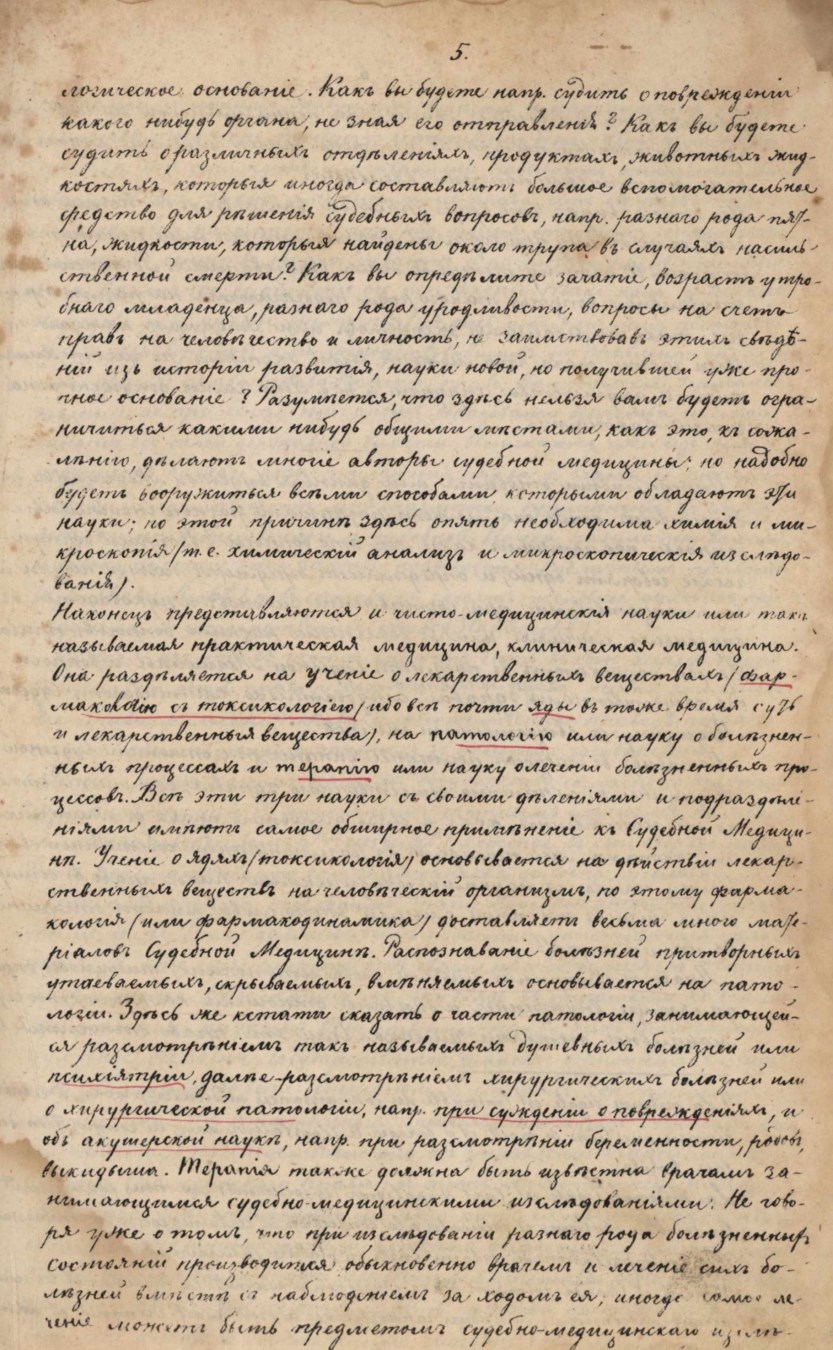 5.
логическое основаніе. Какъ вы будете напр. судить о поврежденіи
какого нибудь органа, не зная его отправленія? Какъ вы будете
судить о различныхъ отдѣленіяхъ, продуктахъ, животныхъ жид-
костяхъ, которыя иногда составляютъ большое вспомогательное
средство для рѣшенія судебныхъ вопросовъ, напр. разнаго рода пят-
на, жидкости, которыя найдены около трупа въ случаяхъ насиль-
ственной смерти? Какъ вы опредѣлите зачатіе, возрастъ утро-
бнаго младенца, разнаго рода уродливости, вопросы на счетъ
правъ на человѣчество и личность, не заимствовавъ этихъ свѣдѣ-
ній изъ исторіи развитія, науки новой, но получившей уже про-
чное основаніе? Разумѣется, что здѣсь нельзя вамъ будетъ огра-
ничиться какими нибудь общими мѣстами, какъ это, къ сожа-
лѣнію, дѣлаютъ многіе авторы судебной медицины; но надобно
будетъ вооружиться всѣми способами, которыми обладаютъ эти
науки; по этой причинѣ здѣсь опять необходима химія и ми-
кроскопія (т.е. химическій анализъ и микроскопическія изслѣдо-
ванія).
Наконецъ представляются и чисто-медицинскія науки или такъ
называемая практическая медицина, клиническая медицина.
Она раздѣляется на ученіе о лекарственныхъ веществахъ (фар-
маковъ съ токсикологіею) (ибо всѣ почти яды въ тоже время суть
и лекарственныя вещества), на патологію или науку о болѣзнен-
ныхъ процессахъ и терапію или науку о леченіи болѣзненныхъ про-
цессовъ. Всѣ эти три науки съ своими дѣленіями и подраздѣле-
ніями имѣютъ самое обширное примѣненіе къ Судебной Медици-
нѣ. Ученіе о ядахъ (токсикологія) основывается на дѣйствіи лекар-
ственныхъ веществъ на человѣческій организмъ, по этому фарма-
кологія (или фармакодинамика) доставляетъ весьма много мате-
ріаловъ Судебной Медицинѣ. Распознаваніе болѣзней притворныхъ
утаеваемыхъ, скрываемыхъ, вмѣняемыхъ основывается на пато-
логіи. Здѣсь же кстати сказать о части патологіи, занимающей-
ся разсмотрѣніемъ такъ называемыхъ душевныхъ болѣзней или
психіятріи, далѣе разсмотрѣніемъ хирургическихъ болѣзней или
о хирургической патологіи, напр. при сужденіи о поврежденіяхъ, и
объ акушерской наукѣ, напр. при разсмотрѣніи беременности, родовъ,
выкидыша. Терапія также должна быть извѣстна врачамъ за-
нимающимся судебно-медицинскими изслѣдованіями. Не гово-
ря уже о томъ, что при изслѣдованіи разнаго рода болѣзненныхъ
состояній производится обыкновенно врачемъ и леченіе сихъ бо-
лѣзней вмѣстѣ съ наблюденіемъ за ходомъ ея; иногда самое ле-
ченіе можетъ быть предметомъ судебно-медицинскаго изслѣ-